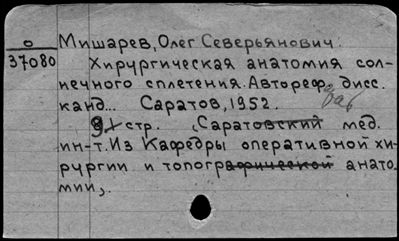 0
37080
Мишарев, Олег Северьянович.
Хирургическая анатомия сол-
нечного сплетения. Автореф. дисс.
канд... Саратов, 1952.
9 стр. (Саратовский мед.
ин-т. Из Кафедры оперативной хи-
рургии и топографической анато-
мии).